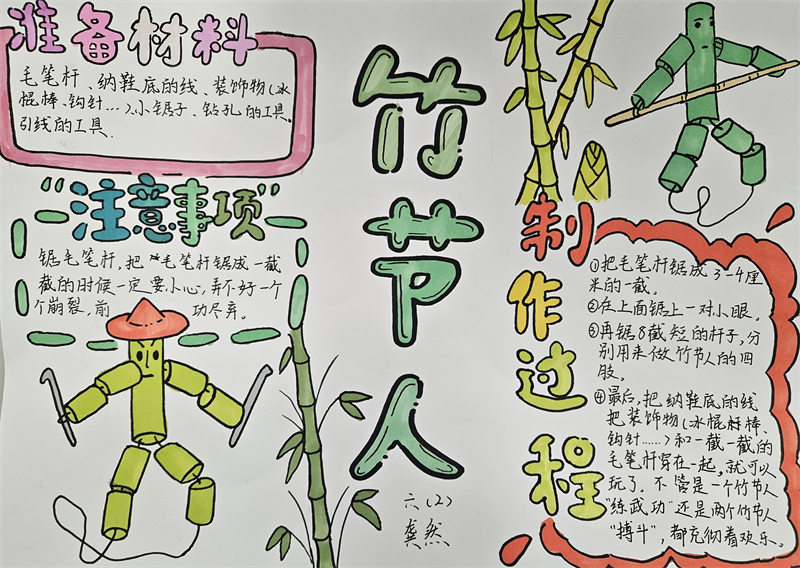 准备材料
毛笔杆、纳鞋底的线、装饰物(冰
棍棒、钩针…)、小锯子、钻孔的工具、
引线的工具.
"注意事项"
锯毛笔杆,把毛笔杆锯成一截
截的时候一定要小心,弄不好一个
个崩裂,前 功尽弃。
竹
节
人
六(2)
龚然
制
作
过
程
①把毛笔杆锯成3-4厘
米的一截。
②在上面锯上一对小眼。
③再锯8截短的杆子,分
别用来做竹节人的四
肢。
④最后,把纳鞋底的线
把装饰物(冰棍棒、
钩针……)和一截一截的
毛笔杆穿在一起,就可以
玩了.不管是一个竹节人
"练武功"还是两个竹节人
"搏斗",都充彻着欢乐。